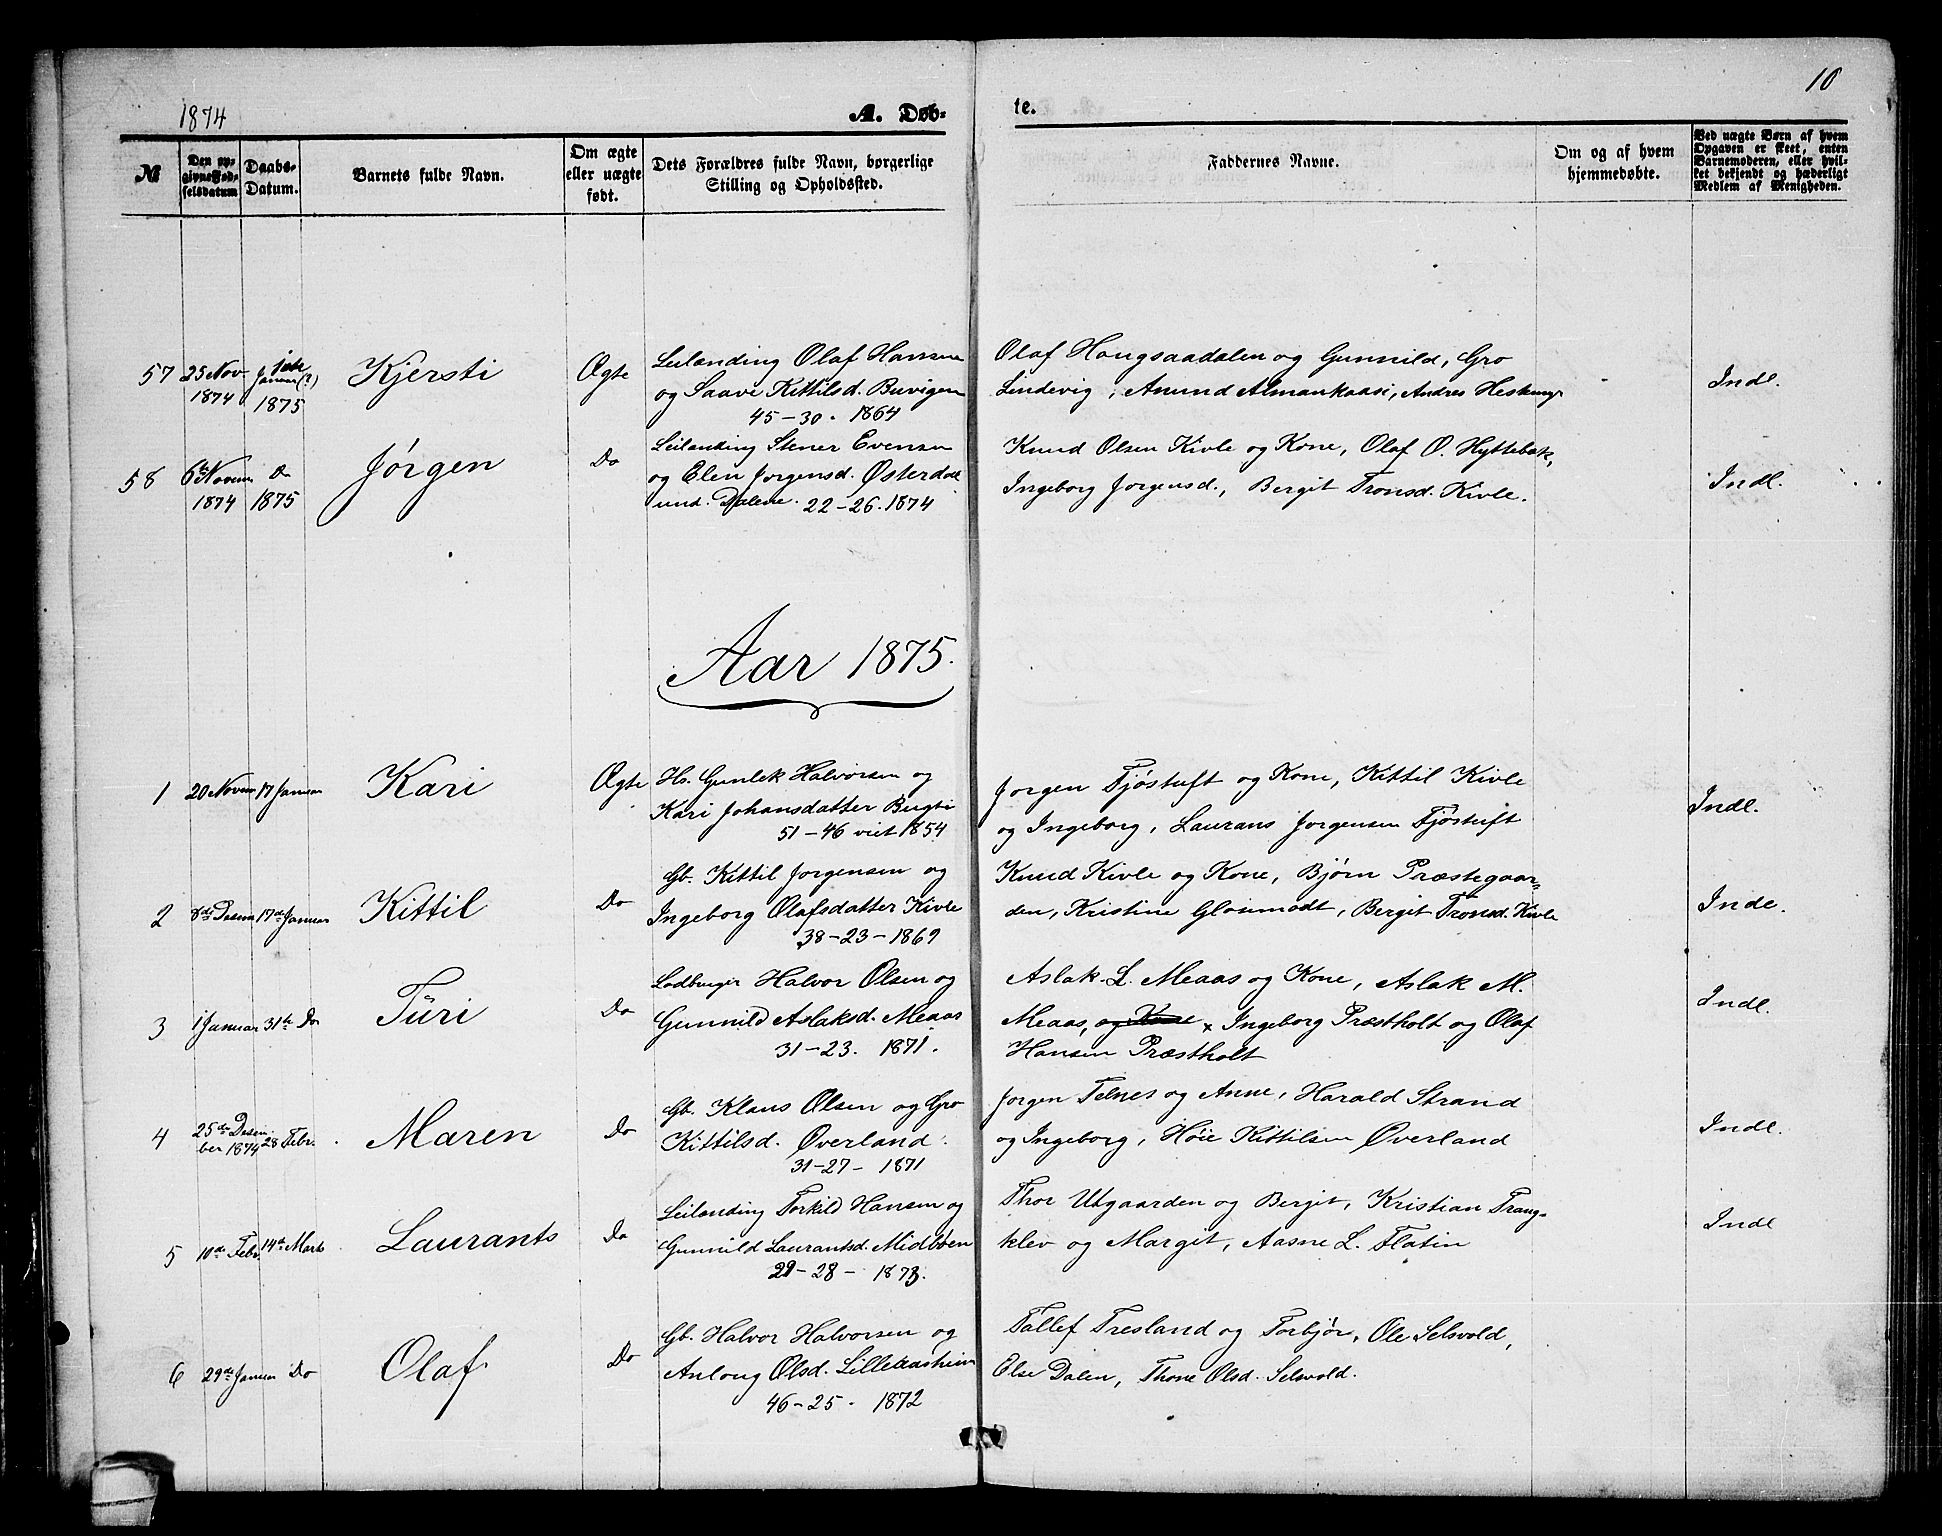 10
1874
A. Døb-
te.
№
Den op-
givne Fød-
selsdatum
Daabs-
Datum.
Barnets fulde Navn.
Om ægte
eller uægte
født.
Dets Forældres fulde Navn, borgerlige
Stilling og Opholdssted.
Faddernes Navne.
Om og af hvem
hjemmedøbte.
Ved uægte Børn af hvem
Opgaven er skeet, enten
Barnemoderen, eller hvil-
ket bekjendt og hæderligt
Medlem af Menigheden.
57 25 Nov. 1874 Januar (?) 1875 Kjersti Ægte
Leilænding Olaf Hansen
og Saave Kittilsd. Buvigen
45-30. 1864
Olaf Haugsaadalen og Gunnild, Gro
Lindevig, Anund Almankaasi, Andres
Indl.
58 6te Novem 1874 Do 1875 Jørgen Do
Leilænding Stener Evensen
og Elen Jorgensd. Østerdal
und. Dalene. 22-26. 1874
Knud Olsen Kivle og Kone, Olaf O. Hyttebæk,
Ingeborg Jorgensd., Bergit Tronsd. Kivle.
Indl.
Aar 1875.
1 20 Novem 17 Januar Kari Ægte
Hs. Gunlek Halvorsen og
Kari Johansdatter
51-46 viet 1854
Jorgen Tjøstuft og Kone, Kittil Kivle
og Ingeborg, Laurans Jorgensen Tjøstuft
Indl.
2 8de Desem 17de Januar Kittil Do
Gb. Kittil Jorgensen og
Ingeborg Olafsdatter Kivle
38-23-1869
Knud Kivle og Kone, Bjørn Præstegaar-
den, Kristine, Bergit Tronsd. Kivle
Indl.
3 1 Januar 31te Do Türi Do
Halvor Olsen og
Gunnild Aslaksd. Meaas
31-23. 1871.
Aslak L. Meaas og Kone, Aslak M.
Meaas, og Kone × Ingeborg Præstholt og Olaf
Hansen Præstholt
Indl.
4 25de Desem
ber 1874 28 Febr. Maren Do
Gb. Klaus Olsen og Gro
Kittilsd. Øverland.
31-27- 1871
Jorgen Telnes og Anne, Harald Strand
og Ingeborg, Høie Kittilsen Øverland
Indl.
5 10de Febr. 14de Marts Laurants Do
Leilænding Torkild Hansen og
Gunnild Laurantsd. Midbøen
29-28- 1873.
Thor Utgaarden og Bergit, Kristian Trang-
klev og Margit, Aasne L. Flatin
Indl
6 29de Januar Do Olaf Do
Gb. Halvor Halvorsen og
Anlong Olsd. Lillekaasheim
46-25. 1872
Tallef Tresland og Torbjør, Ole Selsvold,
Else Dalen, Thone Olsd. Selsvold.